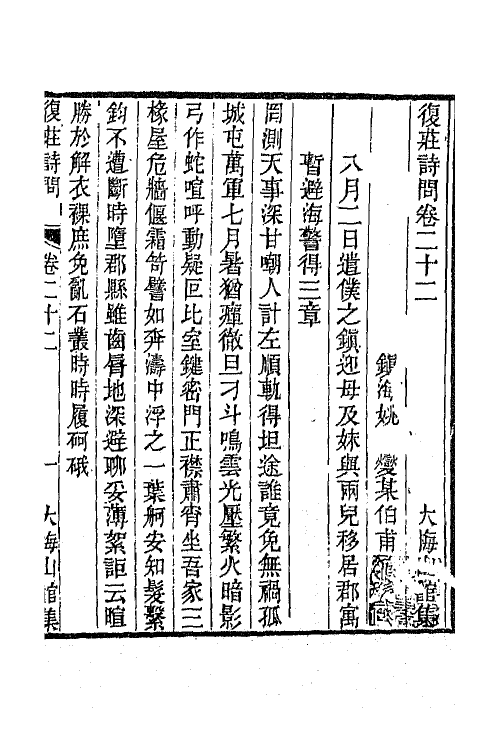 復莊詩問卷二十二　大梅山館集
鎮海姚　燮某伯甫
八月二日遣僕之鎭迎母及妹與兩兒移居郡寓
暫避海警得三章
罔測天事深甘嘲人計左順軌得坦途誰竟免無禍孤
城屯萬軍七月暑猶癉徹旦刁斗鳴雲光壓繁火暗影
弓作蛇喧呼動疑叵比室鍵密門正襟肅宵坐吾家三
椽屋危牆偃霜笴譬如奔濤中浮之一葉舸安知髮繫
鈞不遭斷時墮郡縣雖齒脣地深避聊妥薄絮詎云暄
勝於解衣裸庶免亂石叢時時履砢硪
復莊詩問　卷二十二　一　大梅山館集